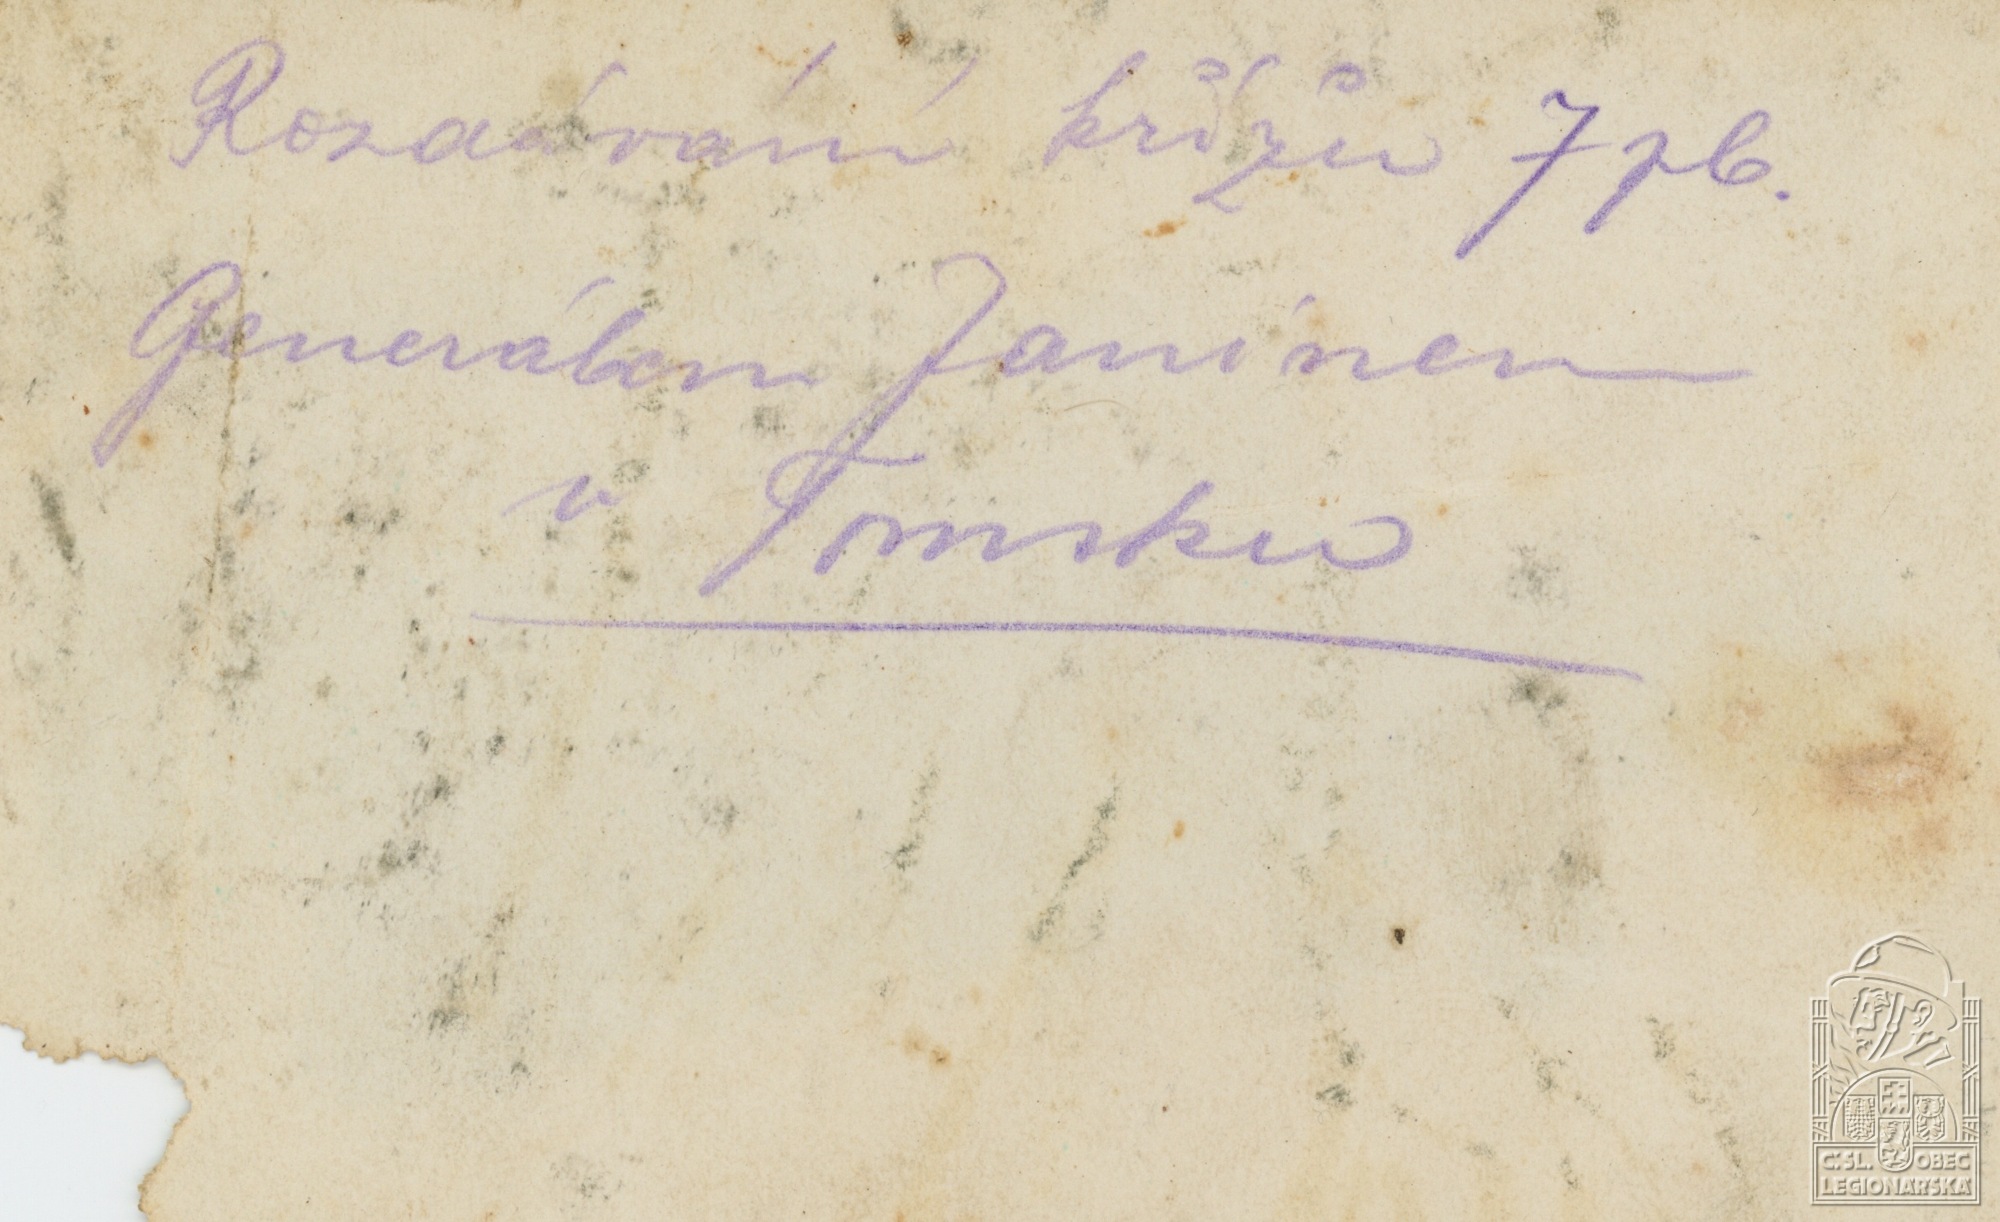 Rozdávání křížů 7 pl.
Generálem Janinem
v Tomsku
Č.SL. OBEC
LEGIONÁŘSKÁ